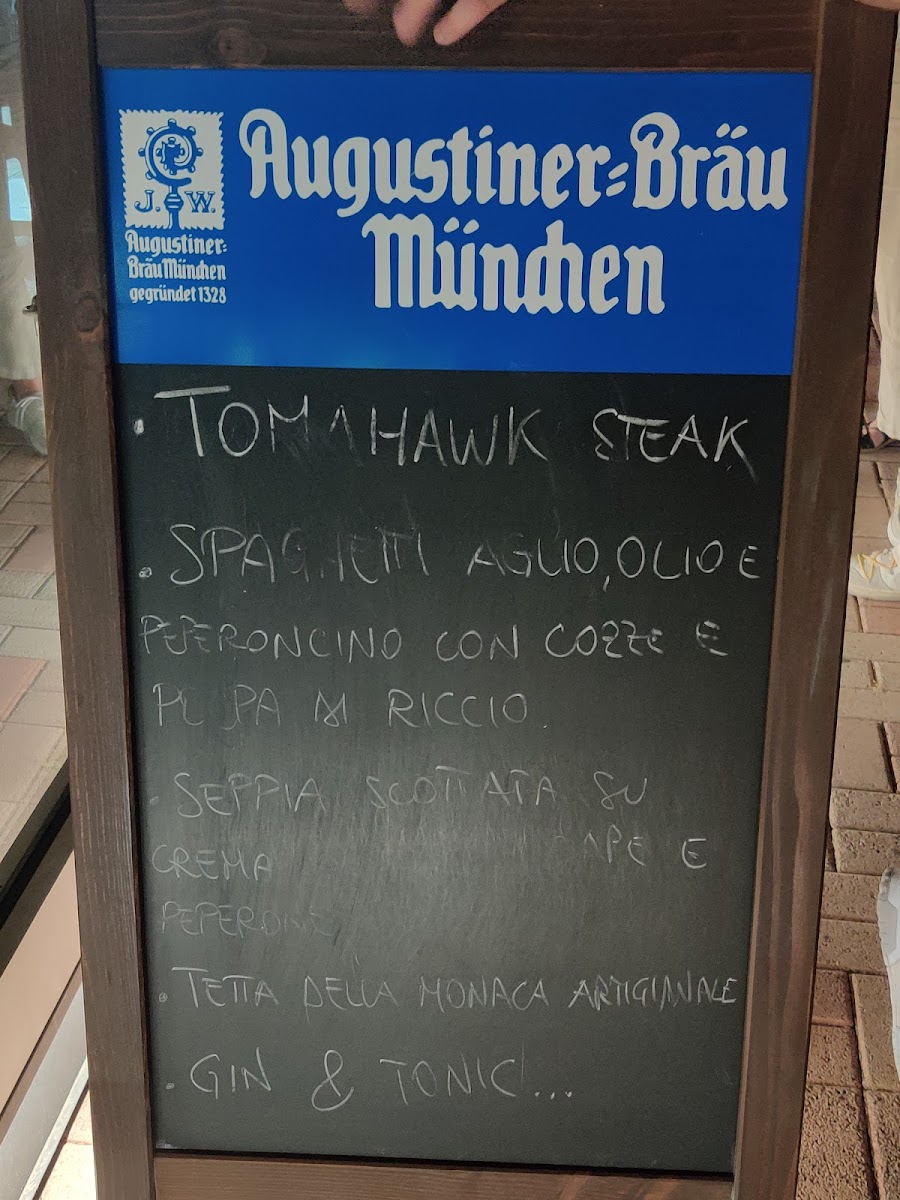 J. W.
Augustiner=
Bräu München
gegründet 1328
Augustiner=Bräu
München
. TOMAHAWK STEAK
. SPAGHETTI AGLIO, OLIO E
PEPERONCINO CON COZZE E
DI RICCIO.
. SEPPIA SCOTTATA SU
CREMA E
PEPERONE
. TETTA DELLA MONACA ARTIGIANALE
. GIN & TONIC...